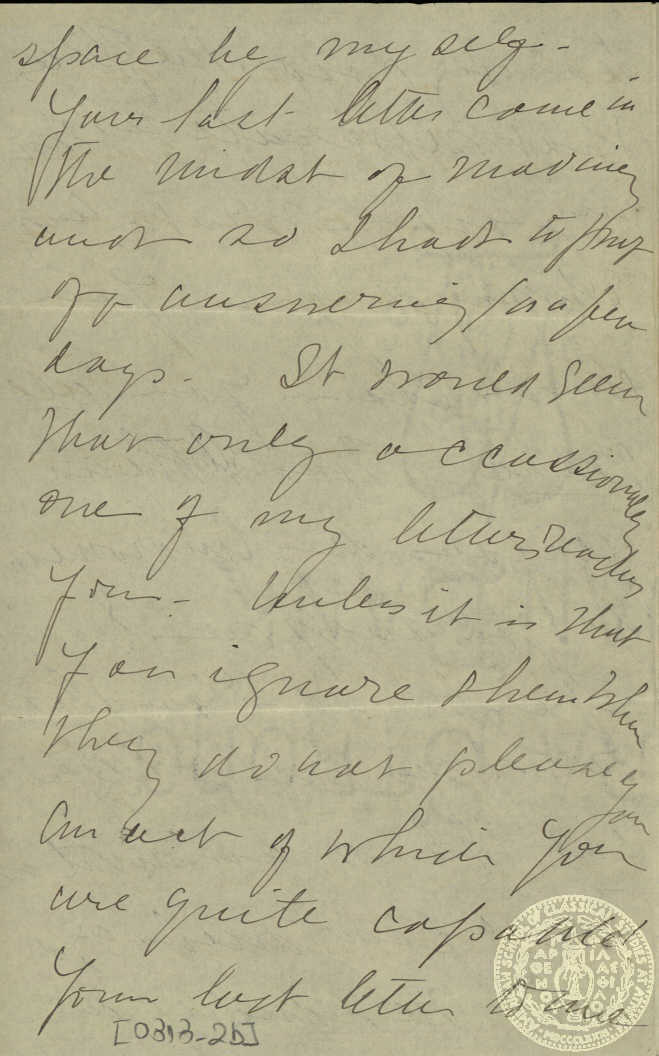 space by myself -
Your last letter came in
the midst of moving
and so I had to put
off answering for a few
days. It would seem
that only occassionally
one of my letters reaches
you - Unless it is that
you ignore them when
they do not please you
An act of which you
are quite capable!
Your last letter to me
[0313-2b]